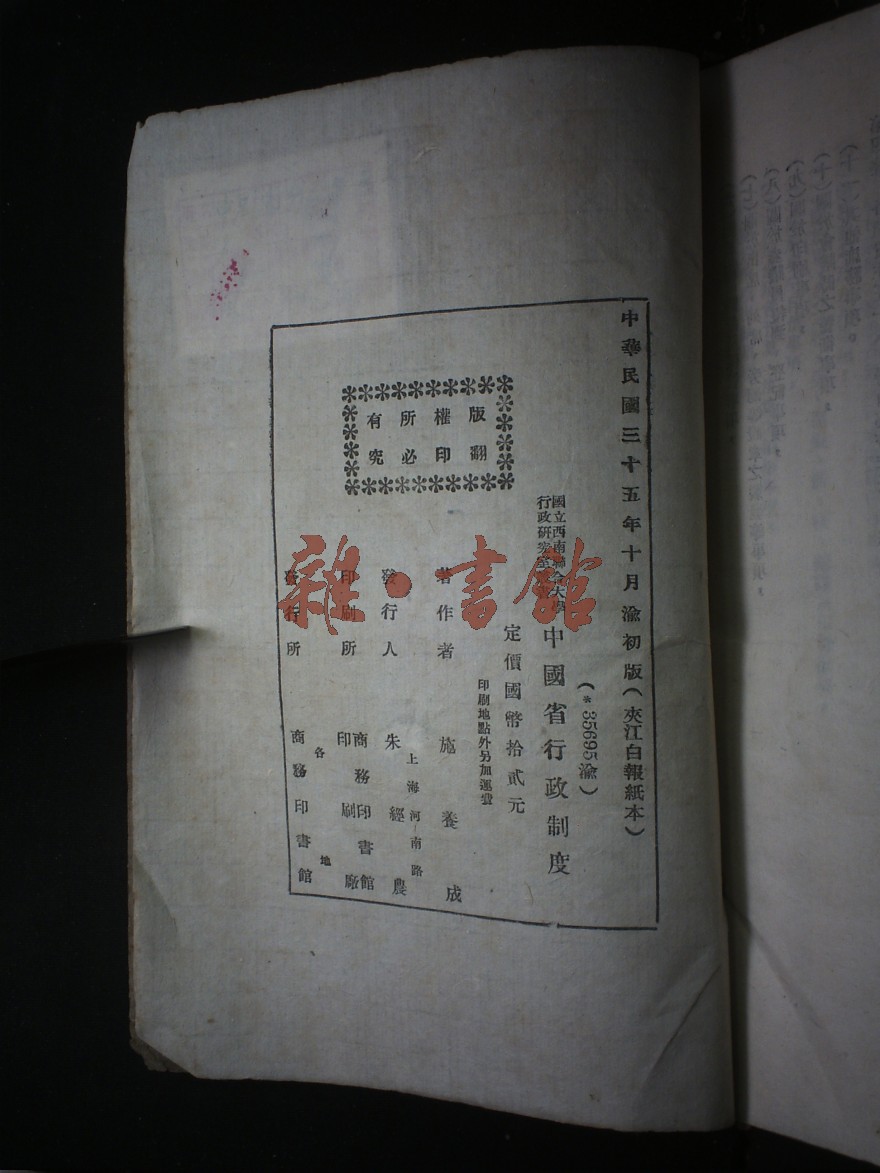 中華民國三十五年十月渝初版(夾江白報紙本)
(*35695渝)
國立西南聯合大學
行政研究室
中國省行政制度
定價國幣拾貳元
印刷地點外另加運費
版權所有
翻印必究
著作者 施養成
上海河南路
發行人 朱經農
印刷所 商務印書館
印刷廠
發行所 各地
商務印書館
雜·書館